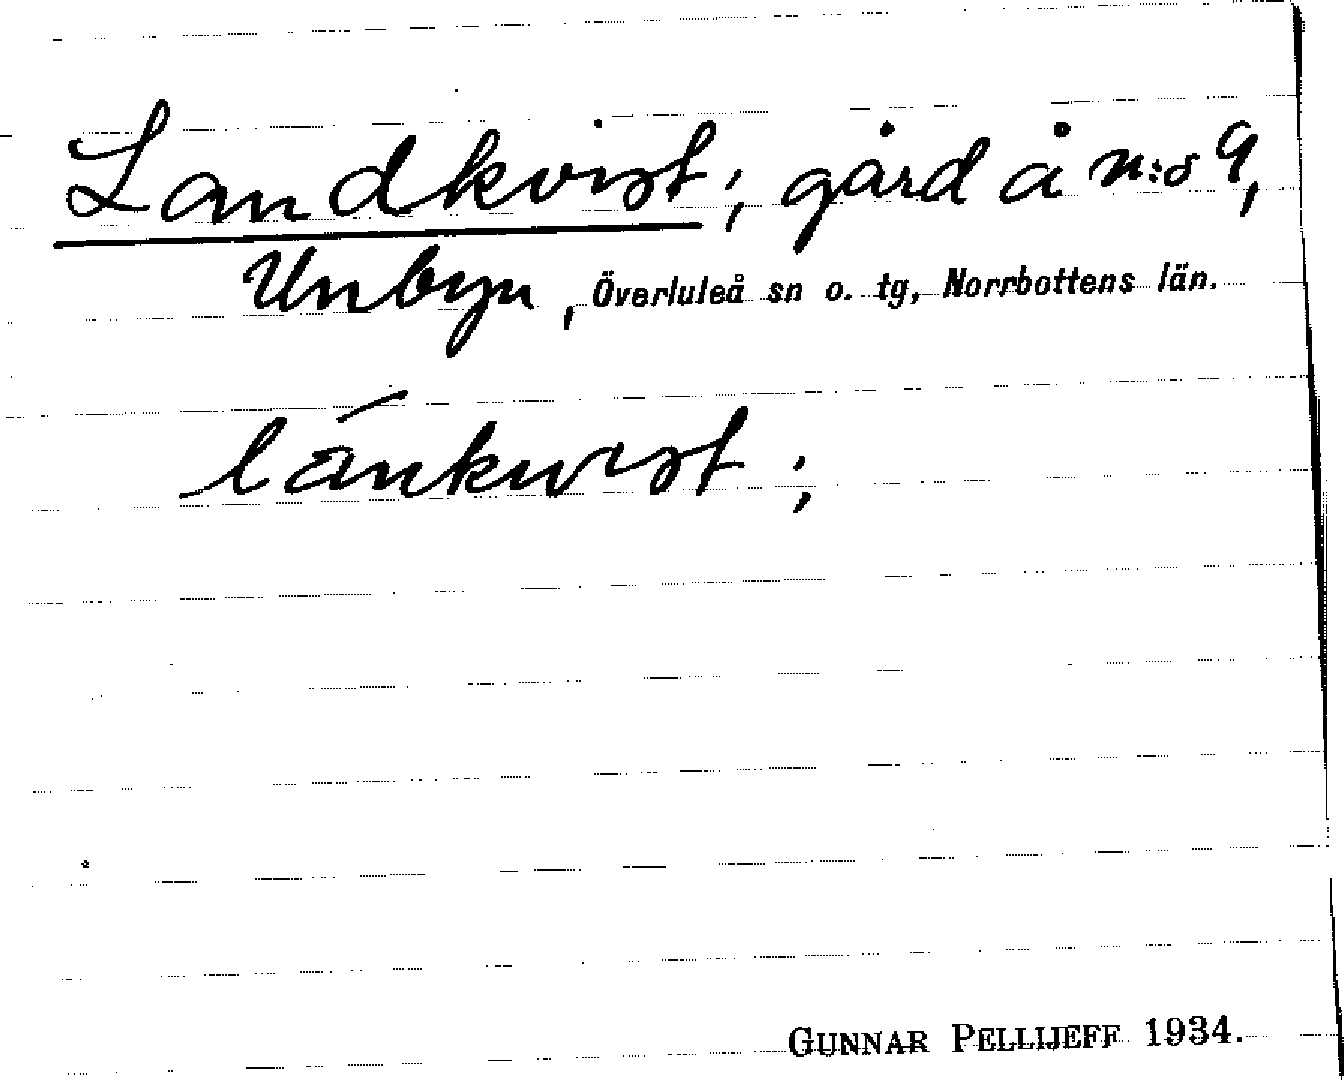 Landkvist; gård å n:o 9,
Unbyn, Överluleå sn o. tg, Norrbottens län.
lánkvist;
GUNNAR PELLIJEFF 1934.